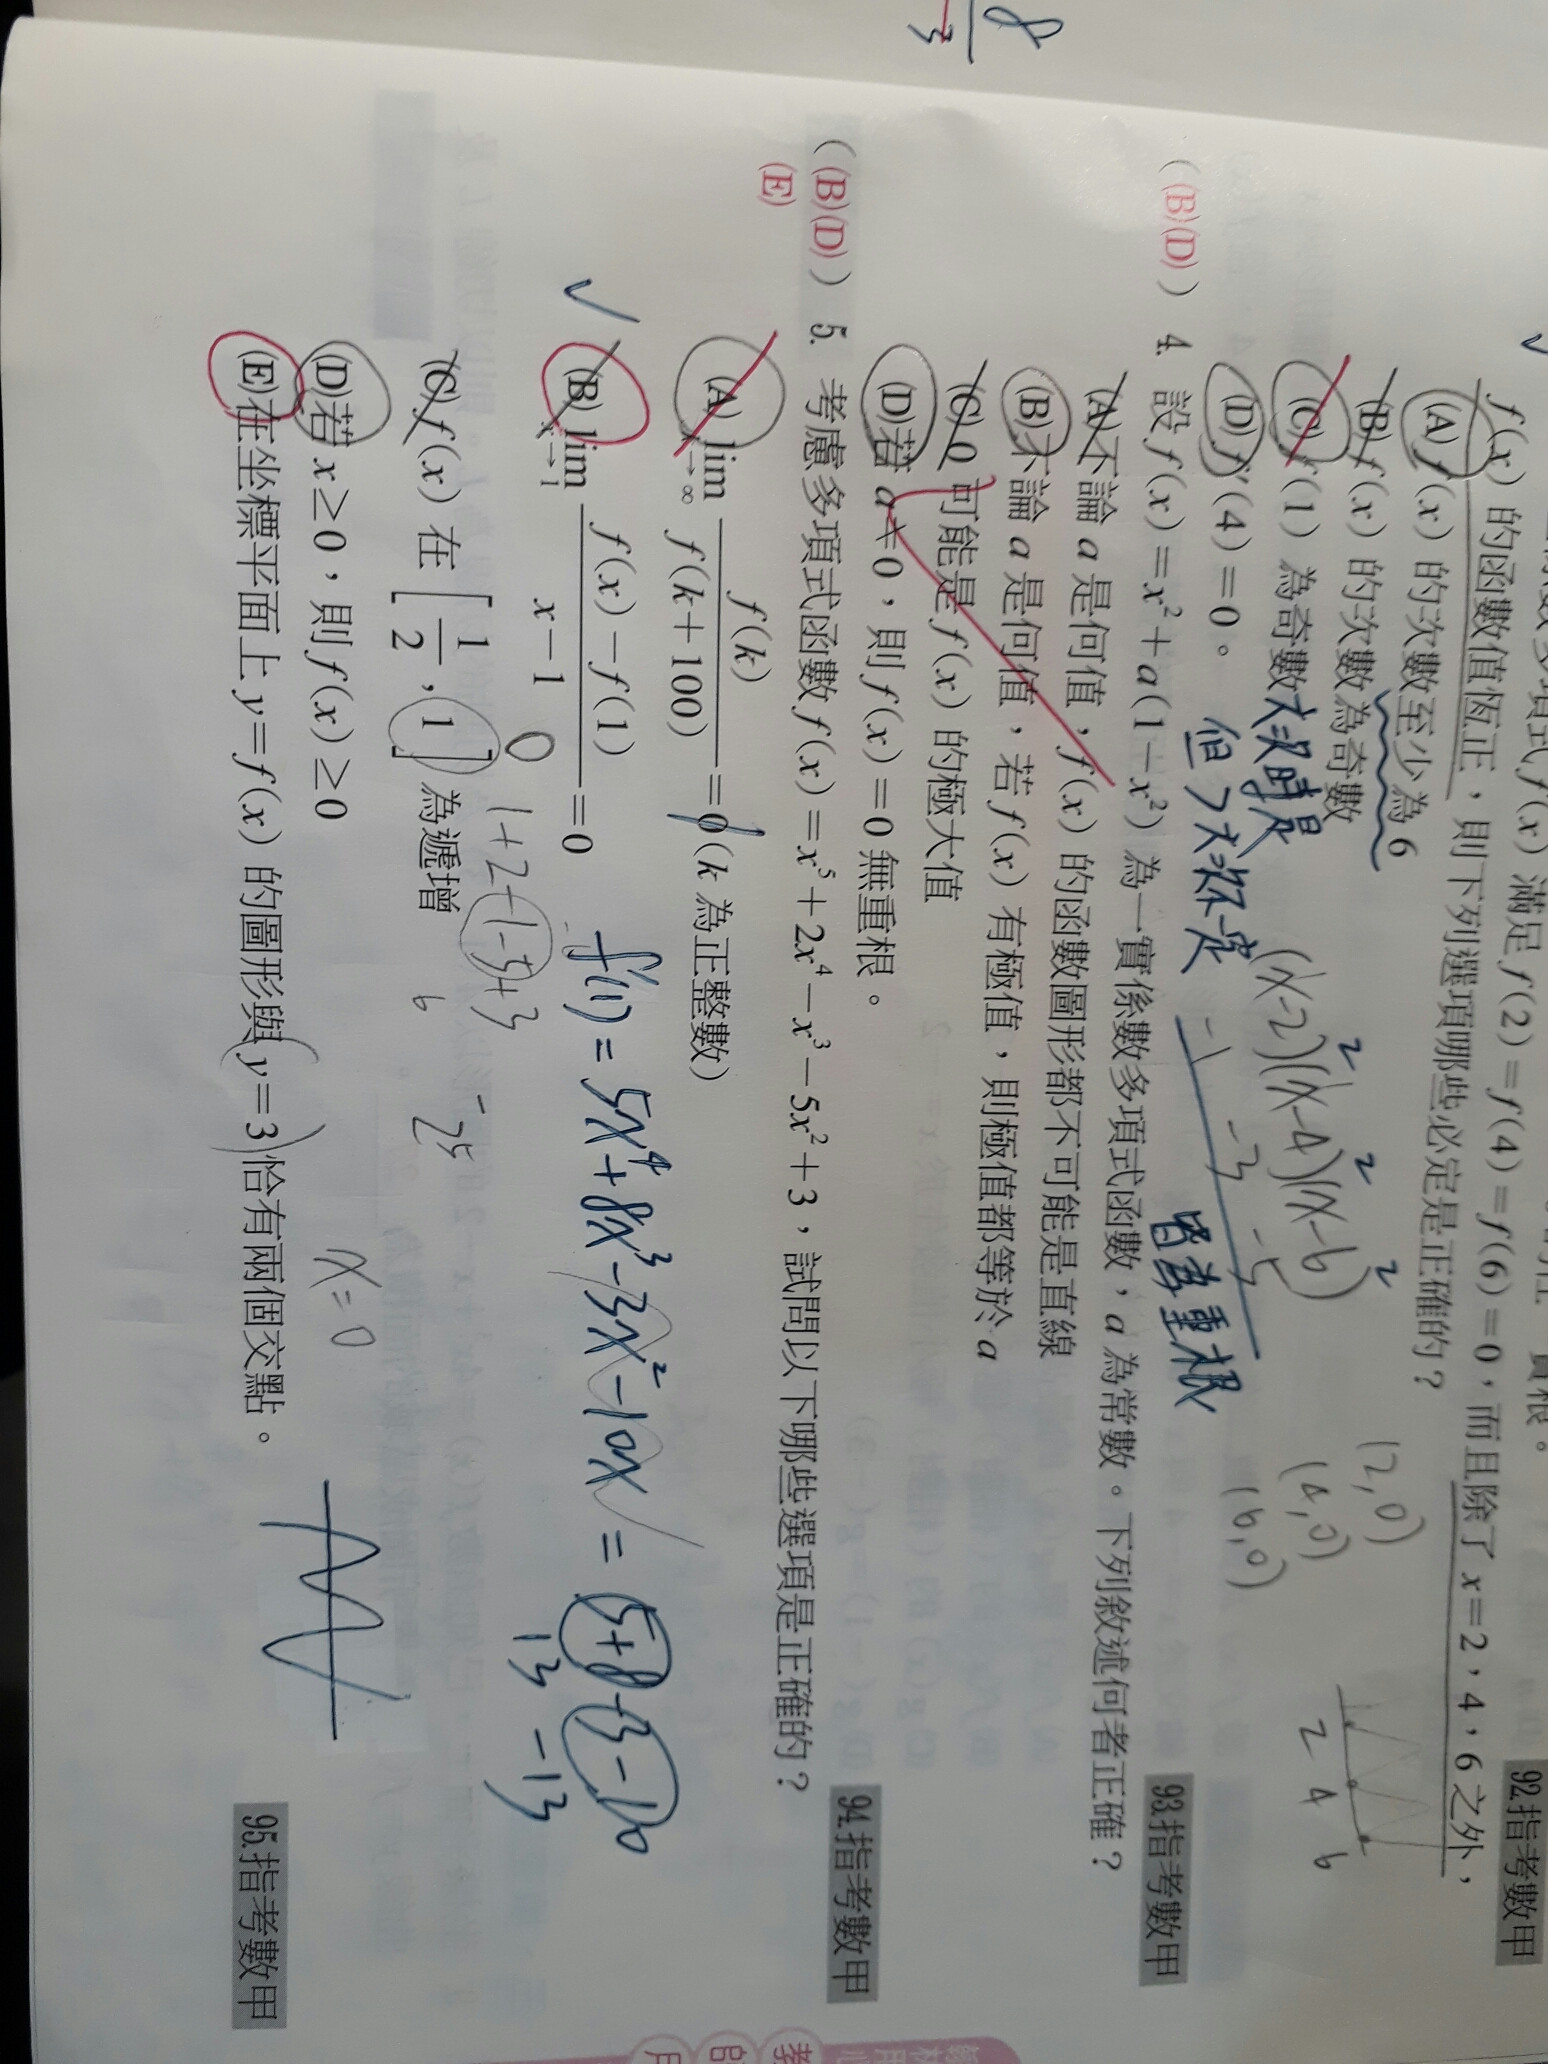 f(x) 的函數值恆正，則下列選項哪些必定是正確的？
92.指考數甲
(A) f(x) 的次數至少為 6
(B) f(x) 的次數為奇數
(C) f(1) 為奇數
(D) f'(4)=0。
(x-2)²(x-4)²(x-6)²
(2,0)
(4,0)
(6,0)
2 4 6
皆為重根
((B)(D)) 4. 設 f(x)=x²+a(1-x²) 為一實係數多項式函數，a 為常數。下列敘述何者正確？
93.指考數甲
(A)不論 a 是何值，f(x) 的函數圖形都不可能是直線
(B)不論 a 是何值，若 f(x) 有極值，則極值都等於 a
(C) 0 可能是 f(x) 的極大值
(D)若 a≠0，則 f(x)=0 無重根。
((B)(D)(E)) 5. 考慮多項式函數 f(x)=x⁵+2x⁴-x³-5x²+3，試問以下哪些選項是正確的？
94.指考數甲
(A) lim k→∞ f(k)/f(k+100)=0 (k 為正整數)
(B) lim x→1 (f(x)-f(1))/(x-1)=0
f'(1) = 5x⁴+8x³-3x²-10x = 5+8-3-10
13 -13
0
1+2-1-5+3
(C) f(x) 在 [1/2,1] 為遞增
(D)若 x≥0，則 f(x)≥0
x=0
(E)在坐標平面上 y=f(x) 的圖形與 y=3 恰有兩個交點。
95.指考數甲